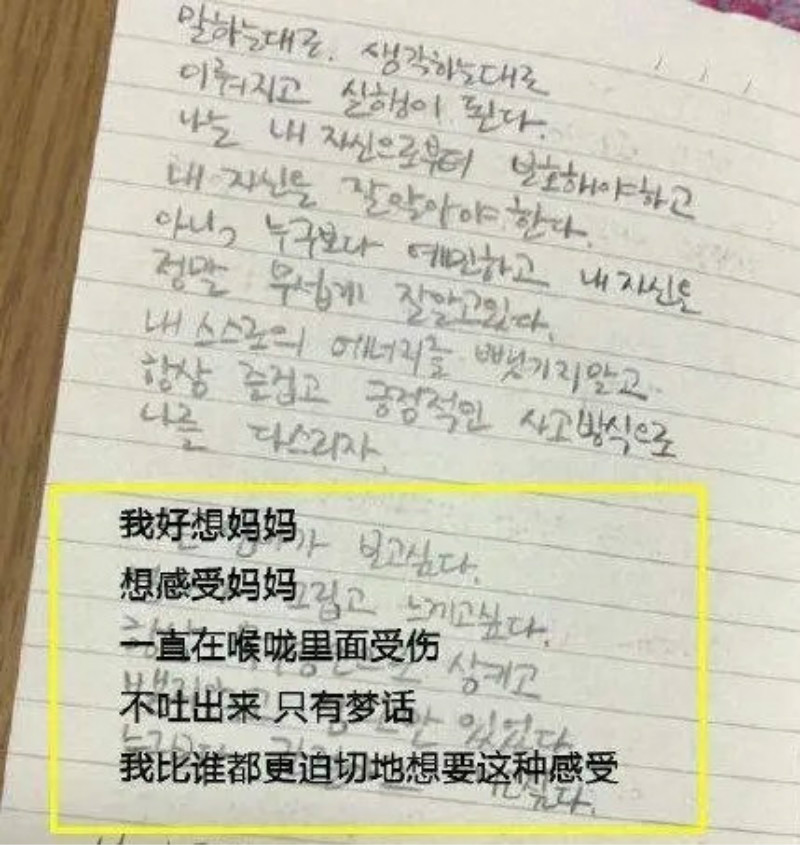 말하는대로. 생각하는대로
이뤄지고 실행이 된다.
나는 내 자신으로부터 보호해야하고
내 자신을 잘알아야 한다.
아니, 누구보다 예민하고 내 자신을
정말 무섭게 잘알고있다.
내 스스로의 에너지를 뺏기지말고
항상 즐겁고 긍정적인 사고방식으로
나를 다스리자.
가 보고싶다.
我好想妈妈
그립고 느끼고싶다.
想感受妈妈
삼키고
一直在喉咙里面受伤
있었다
不吐出来 只有梦话
싶다.
我比谁都更迫切地想要这种感受